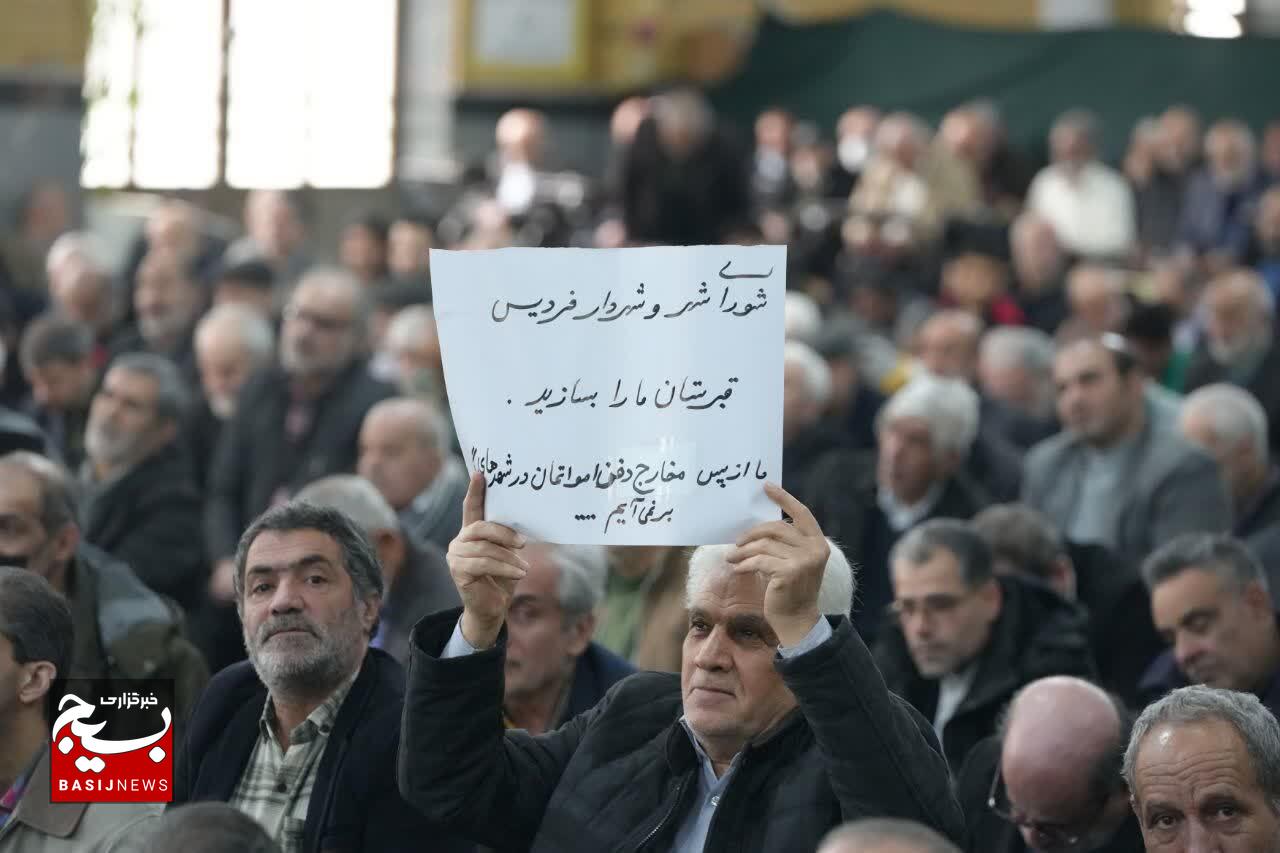 شورای شهر و شهردار فردیس
قبرستان ما را بسازید .
ما از پس مخارج دفن امواتمان در شهرهای
برنمی‌آییم ....
خبرگزاری
بسیج
BASIJNEWS